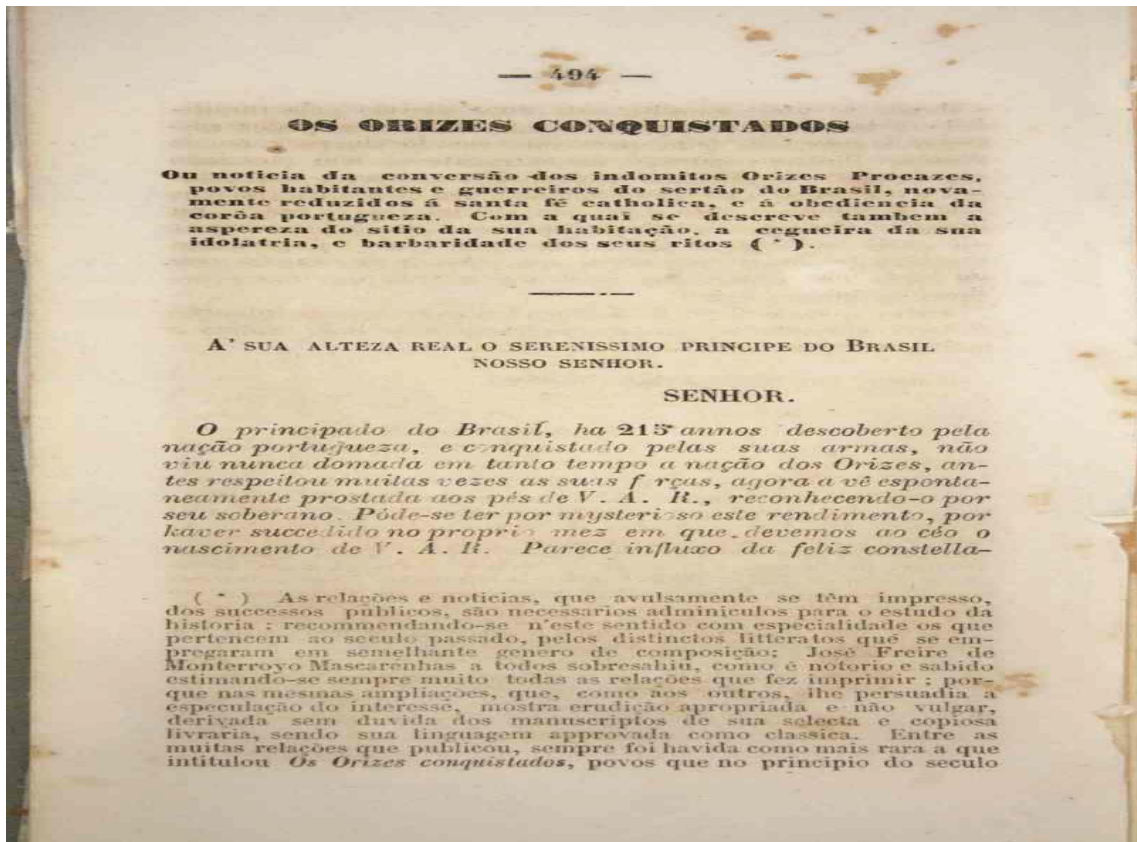 — 494 —
OS ORIZES CONQUISTADOS
Ou noticia da conversão dos indomitos Orizes Procazes,
povos habitantes e guerreiros do sertão do Brasil, nova-
mente reduzidos á santa fé catholica, e á obediencia da
corôa portugueza. Com a qual se descreve tambem a
aspereza do sitio da sua habitação, a cegueira da sua
idolatria, e barbaridade dos seus ritos (*).
A' SUA ALTEZA REAL O SERENISSIMO PRINCIPE DO BRASIL
NOSSO SENHOR.
SENHOR.
O principado do Brasil, ha 215 annos descoberto pela
nação portugueza, e conquistado pelas suas armas, não
viu nunca domada em tanto tempo a nação dos Orizes, an-
tes respeitou muitas vezes as suas f rças, agora a vê esponta-
neamente prostada aos pés de V. A. R., reconhecendo-o por
seu soberano. Póde-se ter por mysterioso este rendimento, por
haver succedido no proprio mez em que devemos ao céo o
nascimento de V. A. R. Parece influxo da feliz constella-
(*) As relações e noticias, que avulsamente se têm impresso,
dos successos publicos, são necessarios adminiculos para o estudo da
historia : recommendando-se n'este sentido com especialidade os que
pertencem ao seculo passado, pelos distinctos litteratos que se em-
pregaram em semelhante genero de composição; José Freire de
Monterroyo Mascarenhas a todos sobresahiu, como é notorio e sabido
estimando-se sempre muito todas as relações que fez imprimir ; por-
que nas mesmas ampliações, que, como aos outros, lhe persuadia a
especulação do interesse, mostra erudição apropriada e não vulgar,
derivada sem duvida dos manuscriptos de sua selecta e copiosa
livraria, sendo sua linguagem approvada como classica. Entre as
muitas relações que publicou, sempre foi havida como mais rara a que
intitulou Os Orizes conquistados, povos que no principio do seculo